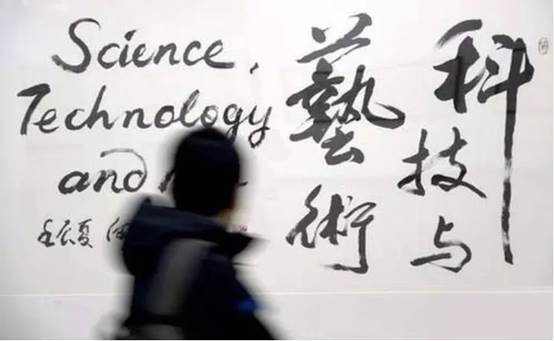 Science,
Technology
and
科技与
藝術
壬辰夏